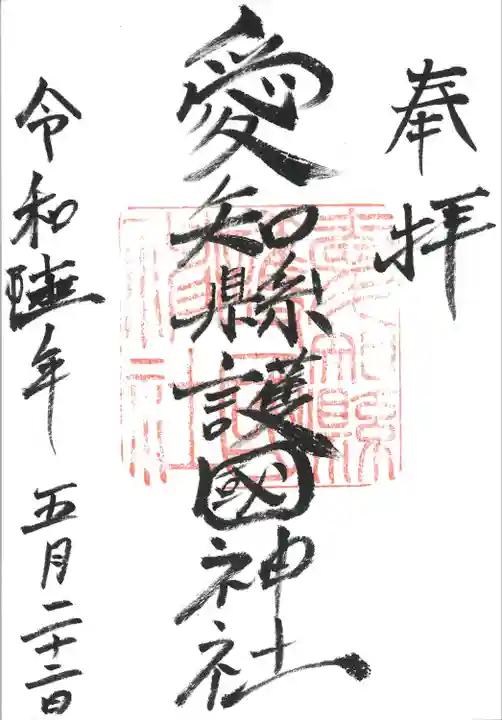 奉拝
愛知縣護國神社
令和陸年 五月二十二日